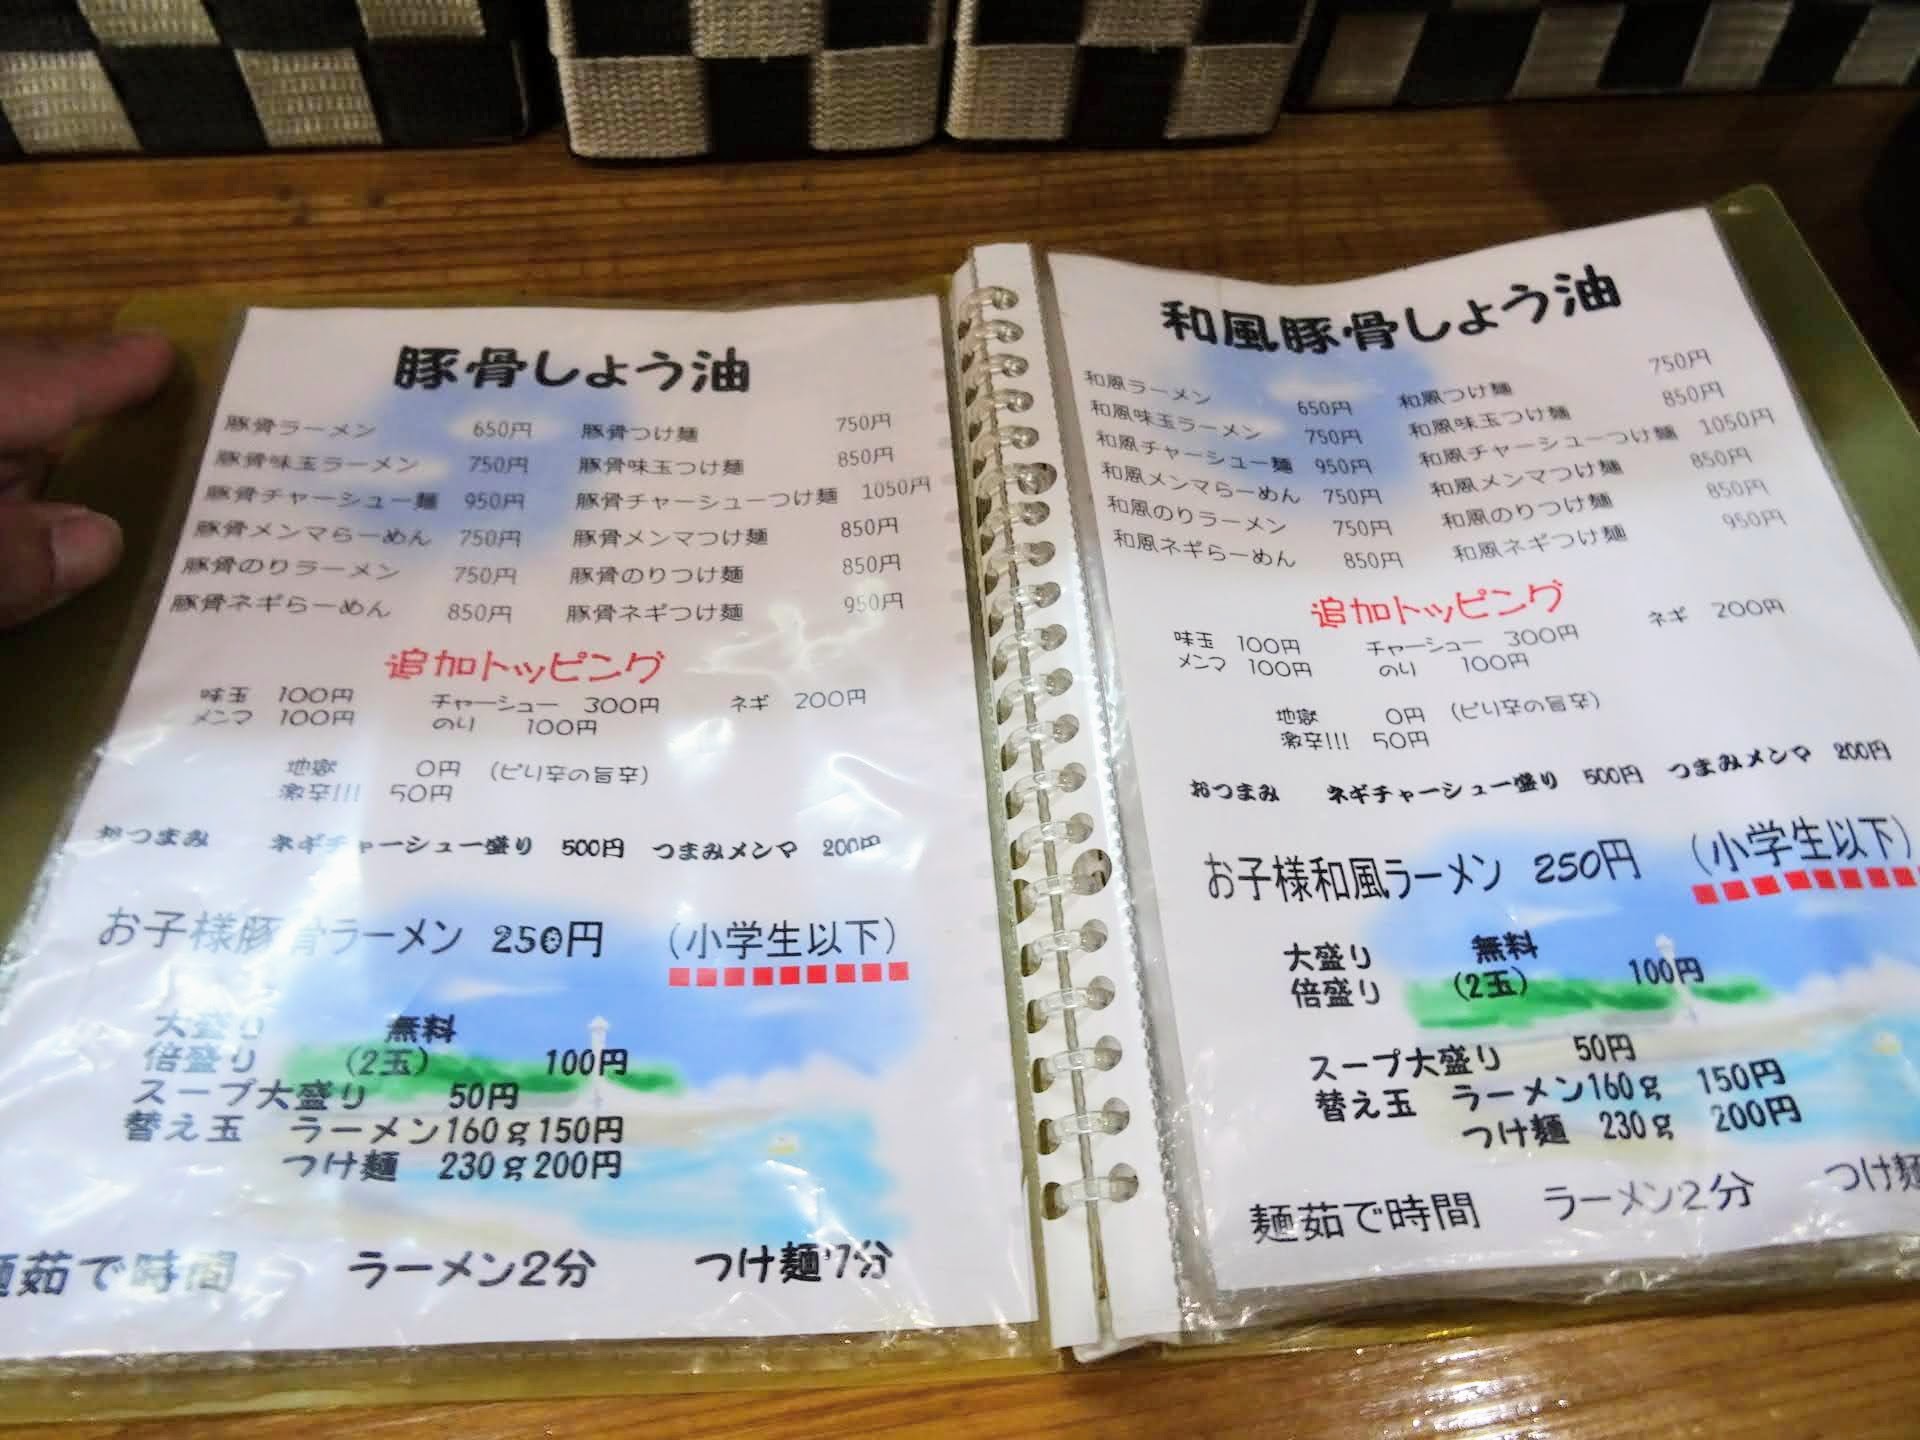 豚骨しょう油
豚骨ラーメン 650円 豚骨つけ麺 750円
豚骨味玉ラーメン 750円 豚骨味玉つけ麺 850円
豚骨チャーシュー麺 950円 豚骨チャーシューつけ麺 1050円
豚骨メンマらーめん 750円 豚骨メンマつけ麺 850円
豚骨のりラーメン 750円 豚骨のりつけ麺 850円
豚骨ネギらーめん 850円 豚骨ネギつけ麺 950円
追加トッピング
味玉 100円 チャーシュー 300円 ネギ 200円
メンマ 100円 のり 100円
地獄 0円 (ピリ辛の旨辛)
激辛!!! 50円
おつまみ ネギチャーシュー盛り 500円 つまみメンマ 200円
お子様豚骨ラーメン 250円 (小学生以下)
大盛り 無料
倍盛り (2玉) 100円
スープ大盛り 50円
替え玉 ラーメン160g150円
つけ麺 230g200円
麺茹で時間 ラーメン2分 つけ麺7分
和風豚骨しょう油
和風ラーメン 650円 和風つけ麺 750円
和風味玉ラーメン 750円 和風味玉つけ麺 850円
和風チャーシュー麺 950円 和風チャーシューつけ麺 1050円
和風メンマらーめん 750円 和風メンマつけ麺 850円
和風のりラーメン 750円 和風のりつけ麺 850円
和風ネギらーめん 850円 和風ネギつけ麺 950円
追加トッピング
味玉 100円 チャーシュー 300円 ネギ 200円
メンマ 100円 のり 100円
地獄 0円 (ピリ辛の旨辛)
激辛!!! 50円
おつまみ ネギチャーシュー盛り 500円 つまみメンマ 200円
お子様和風ラーメン 250円 (小学生以下)
大盛り 無料
倍盛り (2玉) 100円
スープ大盛り 50円
替え玉 ラーメン160g 150円
つけ麺 230g 200円
麺茹で時間 ラーメン2分 つけ麺